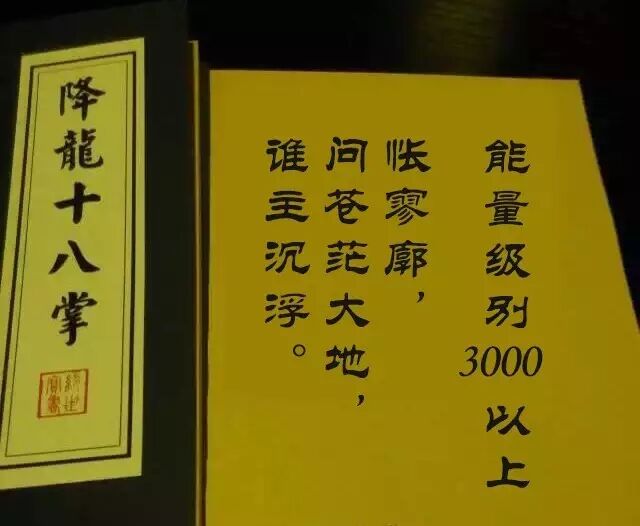 降龍十八掌
能量级别3000以上
怅寥廓，
问苍茫大地，
谁主沉浮。